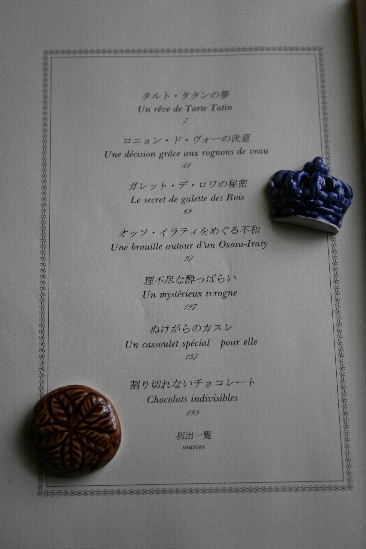 タルト・タタンの夢
Un rêve de Tarte Tatin
7
ロニョン・ド・ヴォーの決意
Une décision grâce aux rognons de veau
41
ガレット・デ・ロワの秘密
Le secret de galette des Rois
69
オッソ・イラティをめぐる不和
Une brouille autour d'an Ossau-Iraty
97
理不尽な酔っぱらい
Un mystérieux ivrogne
127
ぬけがらのカスレ
Un cassoulet spécial pour elle
157
割り切れないチョコレート
Chocolats indivisibles
185
初出一覧
sources